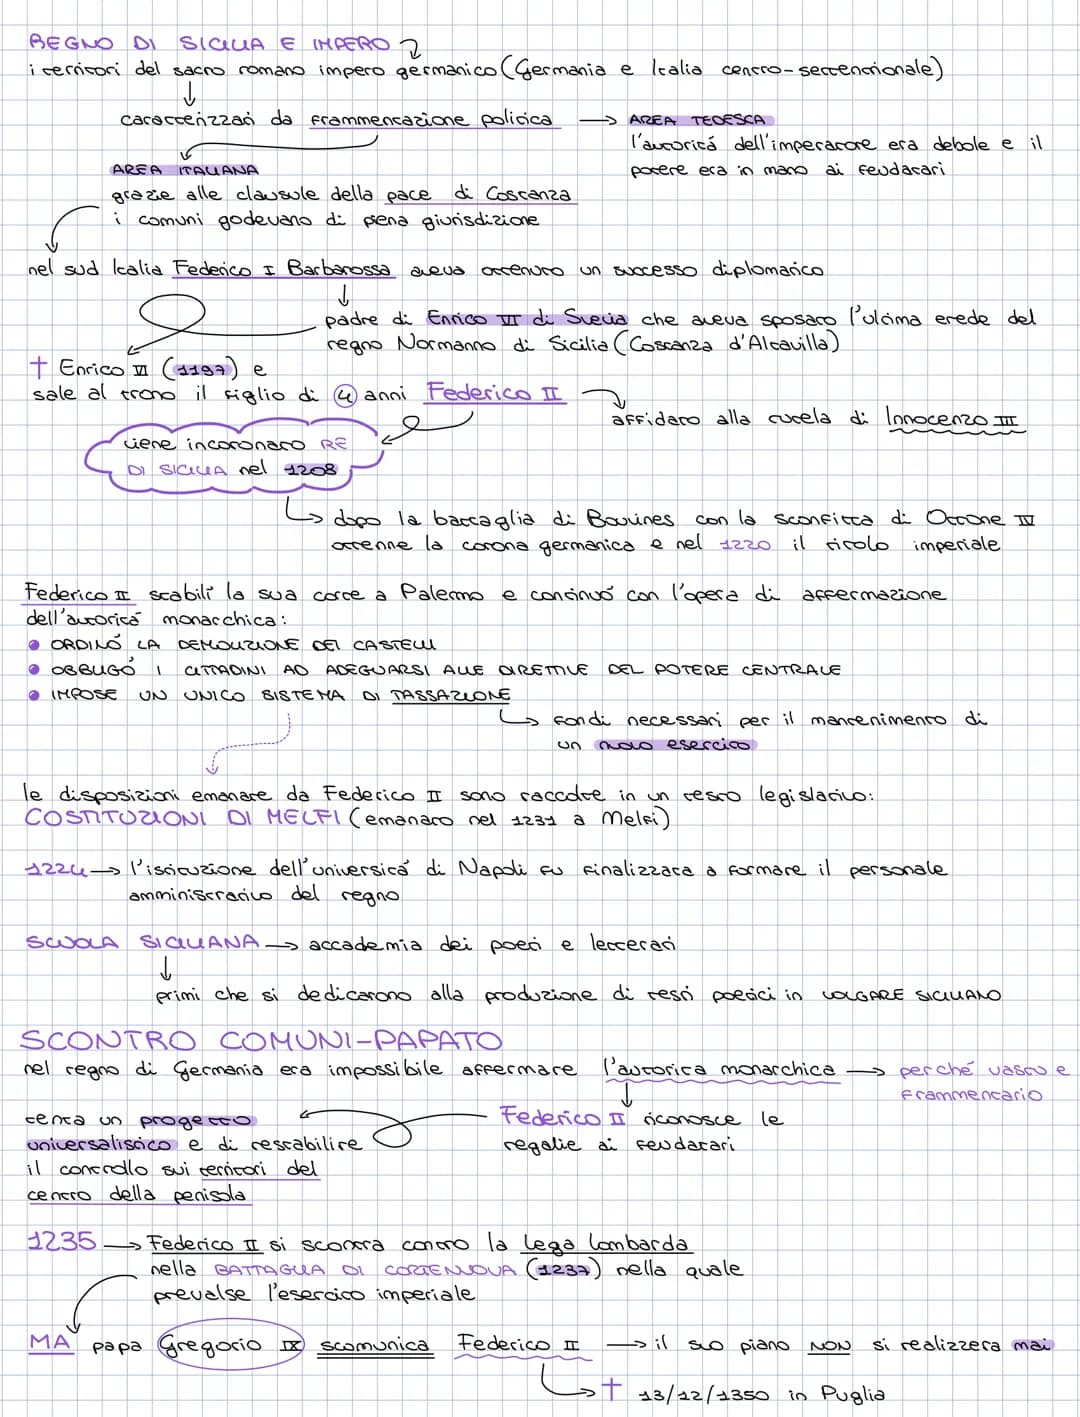 REGNO DI SICILIA E IMPERO
i territori del sacro romano impero germanico (Germania e Italia centro-settentrionale)
caratterizzati da frammentazione politica → AREA TEDESCA
l'autoritá dell'imperatore era debole e il
potere era in mano ai feudatari
AREA ITALIANA
grazie alle clausule della pace di Costanza
i comuni godevano di piena giurisdizione
nel sud Italia Federico I Barbarossa aveva ottenuto un successo diplomatico
padre di Enrico VI di Svevia che aveva sposato l'ultima erede del
regno Normanno di Sicilia (Costanza d'Altavilla)
† Enrico VI (1197) e
sale al trono il figlio di 4 anni Federico II
affidato alla tutela di Innocenzo III
viene incoronato RE
DI SICILIA nel 1208
dopo la battaglia di Bouines con la sconfitta di Ottone IV
ottenne la corona germanica e nel 1220 il titolo imperiale
Federico II stabilí la sua corte a Palermo e continuó con l'opera di affermazione
dell'autoritá monarchica:
• ORDINÓ LA DEMOLIZIONE DEI CASTELLI
• OBBLIGÓ I CITTADINI AD ADEGUARSI ALLE DIRETTIVE DEL POTERE CENTRALE
• IMPOSE UN UNICO SISTEMA DI TASSAZIONE
fondi necessari per il mantenimento di
un nuovo esercito
le disposizioni emanate da Federico II sono raccolte in un testo legislativo:
COSTITUZIONI DI MELFI (emanato nel 1231 a Melfi)
1224 → l'istituzione dell'universitá di Napoli fu finalizzata a formare il personale
amministrativo del regno
SCUOLA SICILIANA → accademia dei poeti e letterati
primi che si dedicarono alla produzione di testi poetici in VOLGARE SICILIANO
SCONTRO COMUNI-PAPATO
nel regno di Germania era impossibile affermare l'autorita monarchica → perché vasto e
frammentario
Federico II riconosce le
regalie ai feudatari
tenta un progetto
universalistico e di restabilire
il controllo sui territori del
centro della penisola
1235 → Federico II si scontra contro la Lega Lombarda
nella BATTAGLIA DI CORTENUOVA (1237) nella quale
prevalse l'esercito imperiale
MA papa Gregorio IX scomunica Federico II → il suo piano NON si realizzera mai
† 13/12/1350 in Puglia